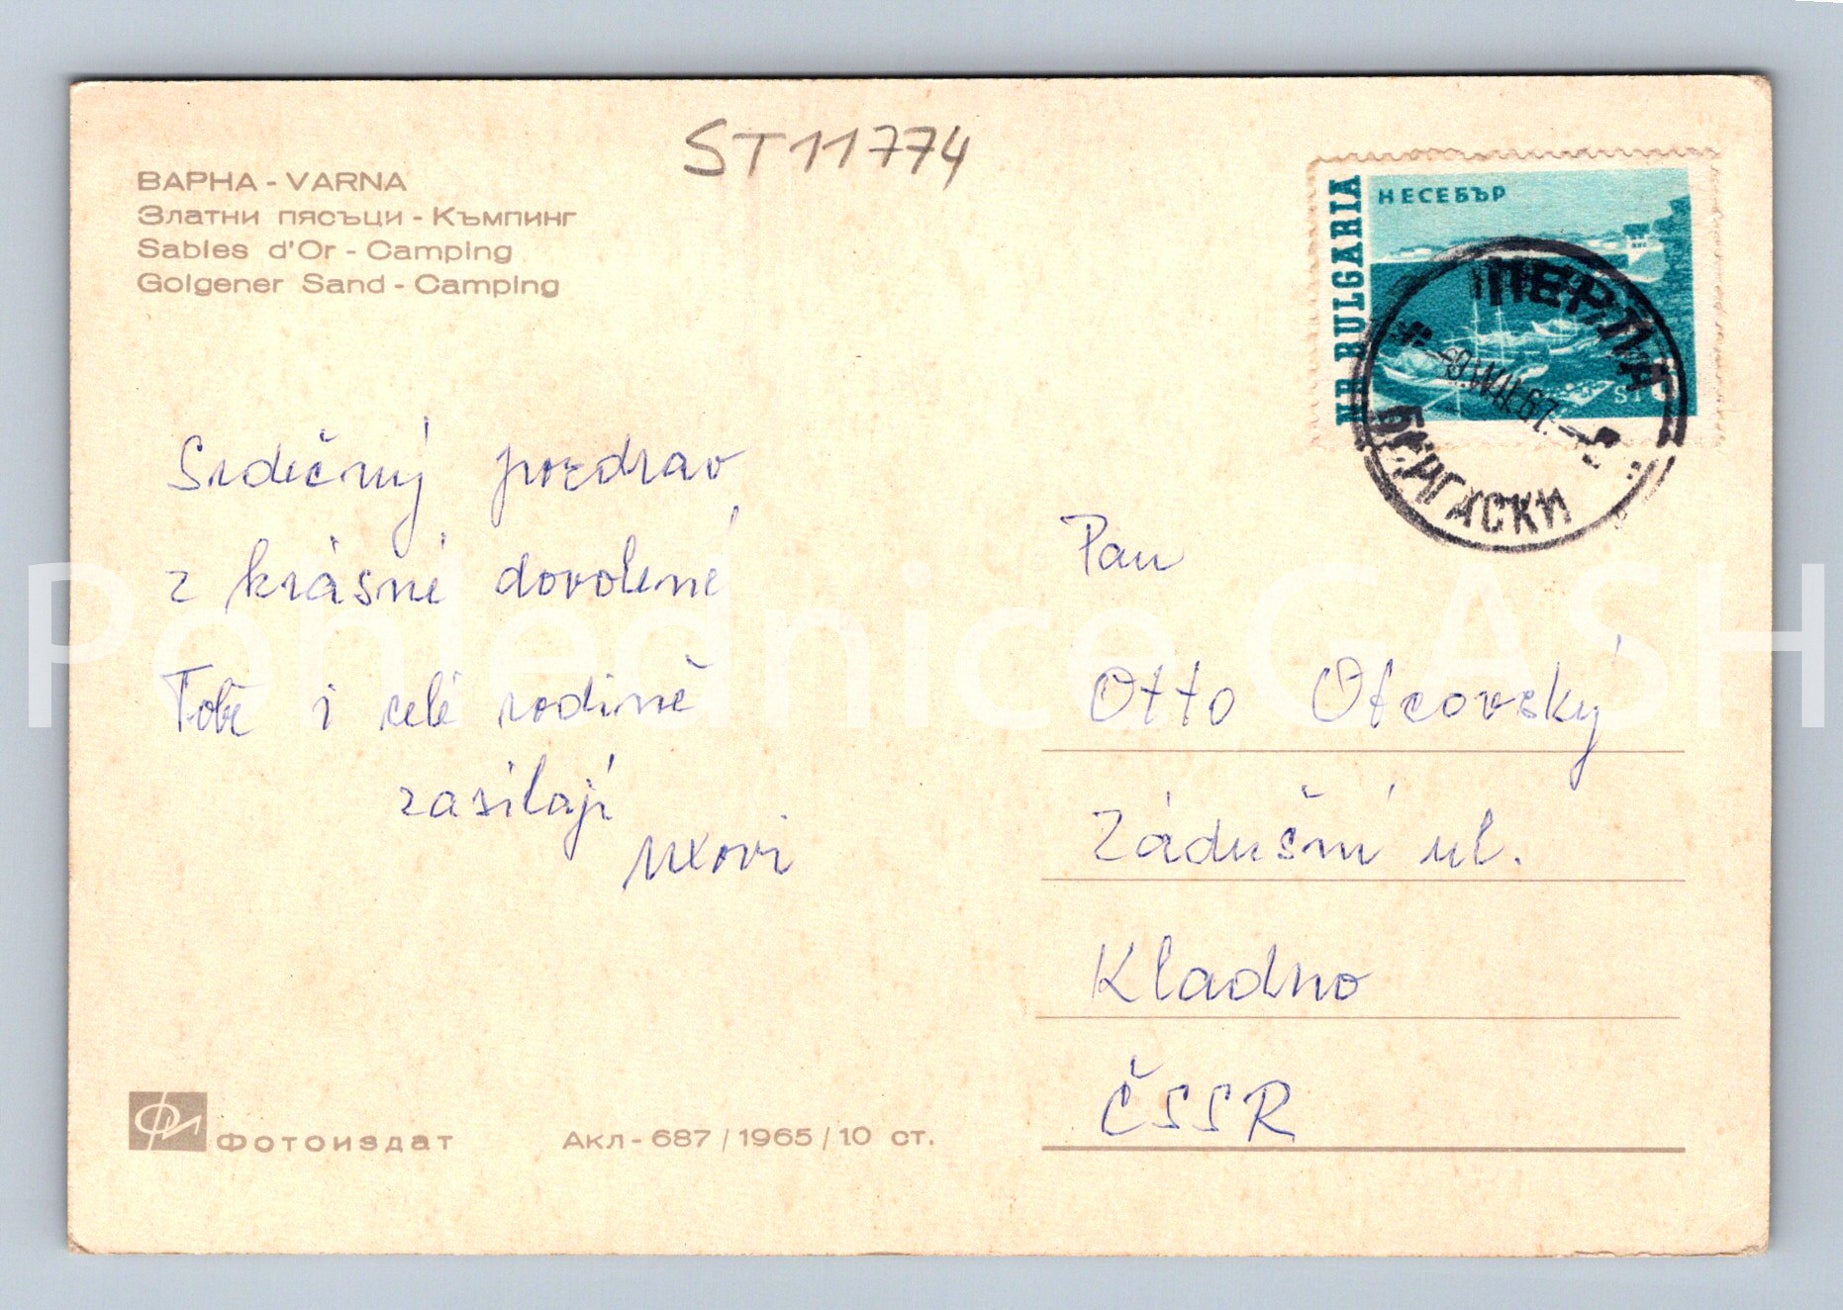 ST11774
ВАРНА - VARNA
Златни пясъци - Къмпинг
Sables d'Or - Camping
Golgener Sand - Camping
NR BULGARIA
НЕСЕБЪР
ST
ПЕРЛА
Srdečný pozdrav
z krásné dovolené
Tobě i celé rodině
zasílají
Pan
Otto Otcovský
Zádušní ul.
Kladno
ČSSR
ФОТОИЗДАТ
Акл - 687 / 1965 / 10 ст.
Pohlednice GASH